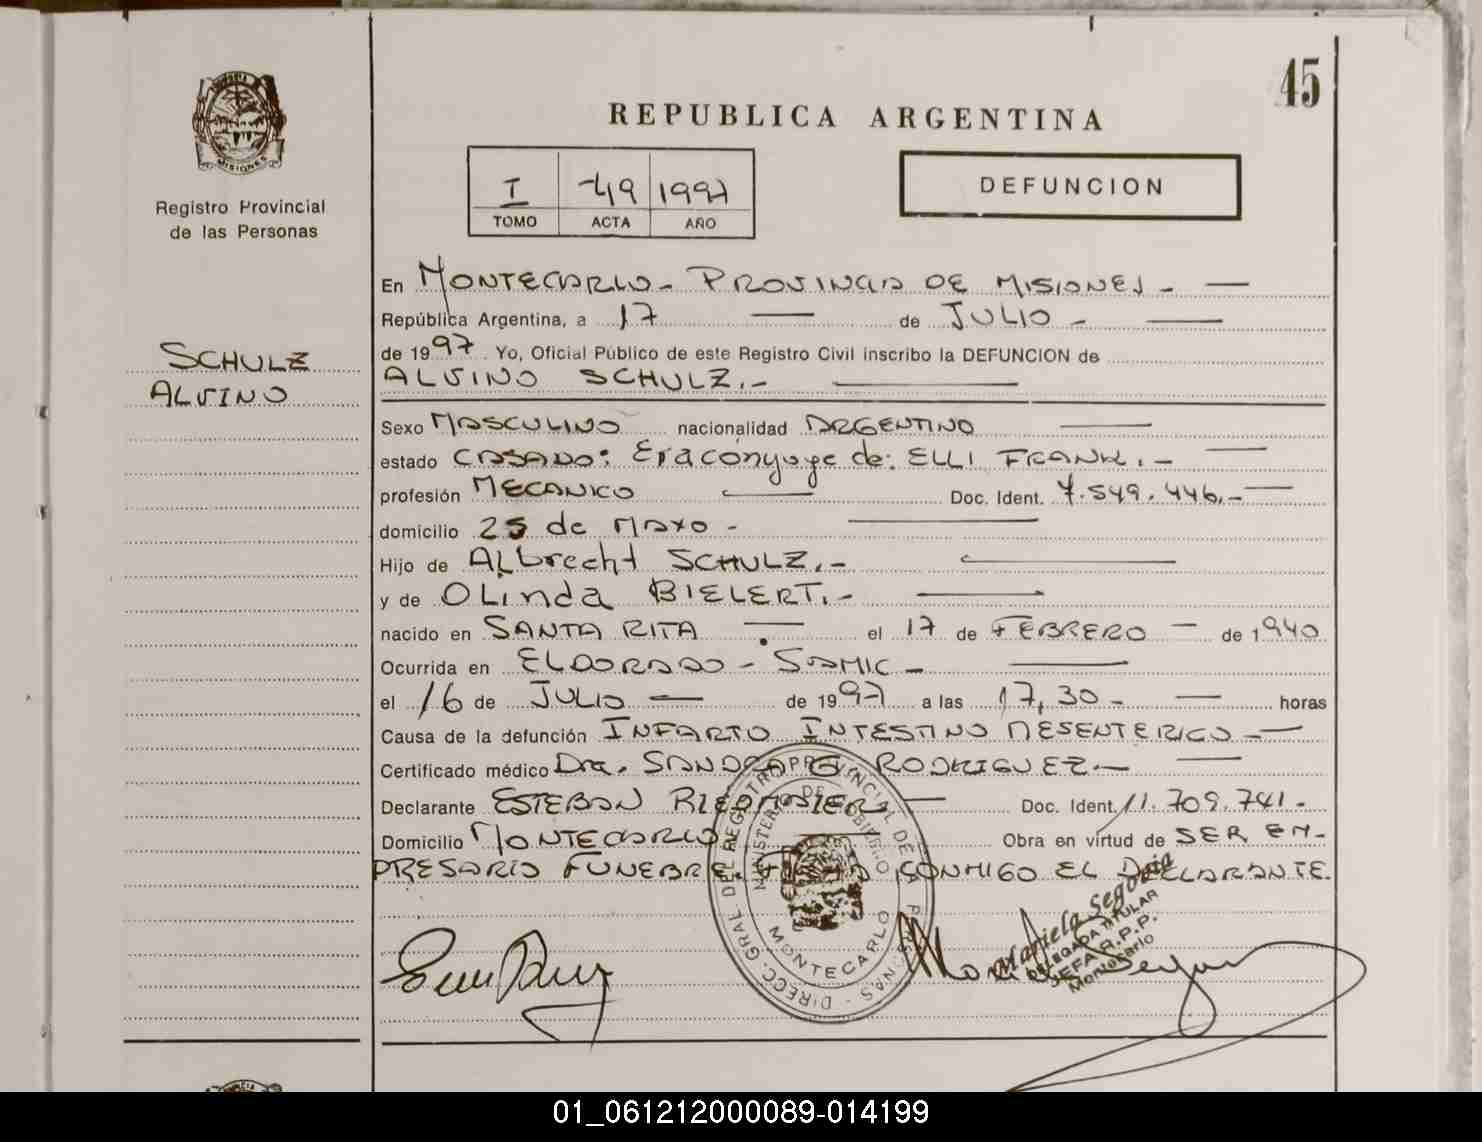 45
REPUBLICA ARGENTINA
I -49 1997
TOMO ACTA AÑO
DEFUNCION
MISIONES
Registro Provincial
de las Personas
SCHULZ
ALVINO
En MONTECARLO - PROVINCIA DE MISIONES -
República Argentina, a 17 de JULIO -
de 1997. Yo, Oficial Público de este Registro Civil inscribo la DEFUNCION de
ALVINO SCHULZ.-
Sexo MASCULINO nacionalidad ARGENTINO
estado CASADO: Era cónyuge de: ELLI FRANK.-
profesión MECANICO Doc. Ident. 7.549.446.-
domicilio 25 de MAYO -
Hijo de ALbrecht SCHULZ.-
y de OLinda BIELERT.-
nacido en SANTA RITA el 17 de FEBRERO - de 1940
Ocurrida en ELDORADO - SAMIC -
el 16 de JULIO de 1997 a las 17,30 - horas
Causa de la defunción INFARTO INTESTINO MESENTERICO -
Certificado médico Dra. SANDRA G RODRIGUEZ -
Declarante ESTEBAN Doc. Ident. 11.709.741 -
Domicilio MONTECARLO Obra en virtud de SER EM-
PRESARIO FUNEBRE. FIRMA CONMIGO EL DECLARANTE.
DIRECC. GRAL. DEL REGISTRO PROVINCIAL DE LA PERSONAS
MINISTERIO DE GOBIERNO
MONTECARLO
Mariela Segovia
DELEGADA TITULAR
JEFA R.P.P.
Montecarlo
01_061212000089-014199